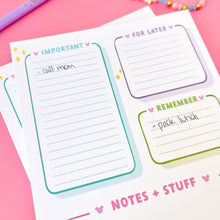 IMPORTANT
- call mom
FOR LATER
REMEMBER
- pack lunch
NOTES + STUFF